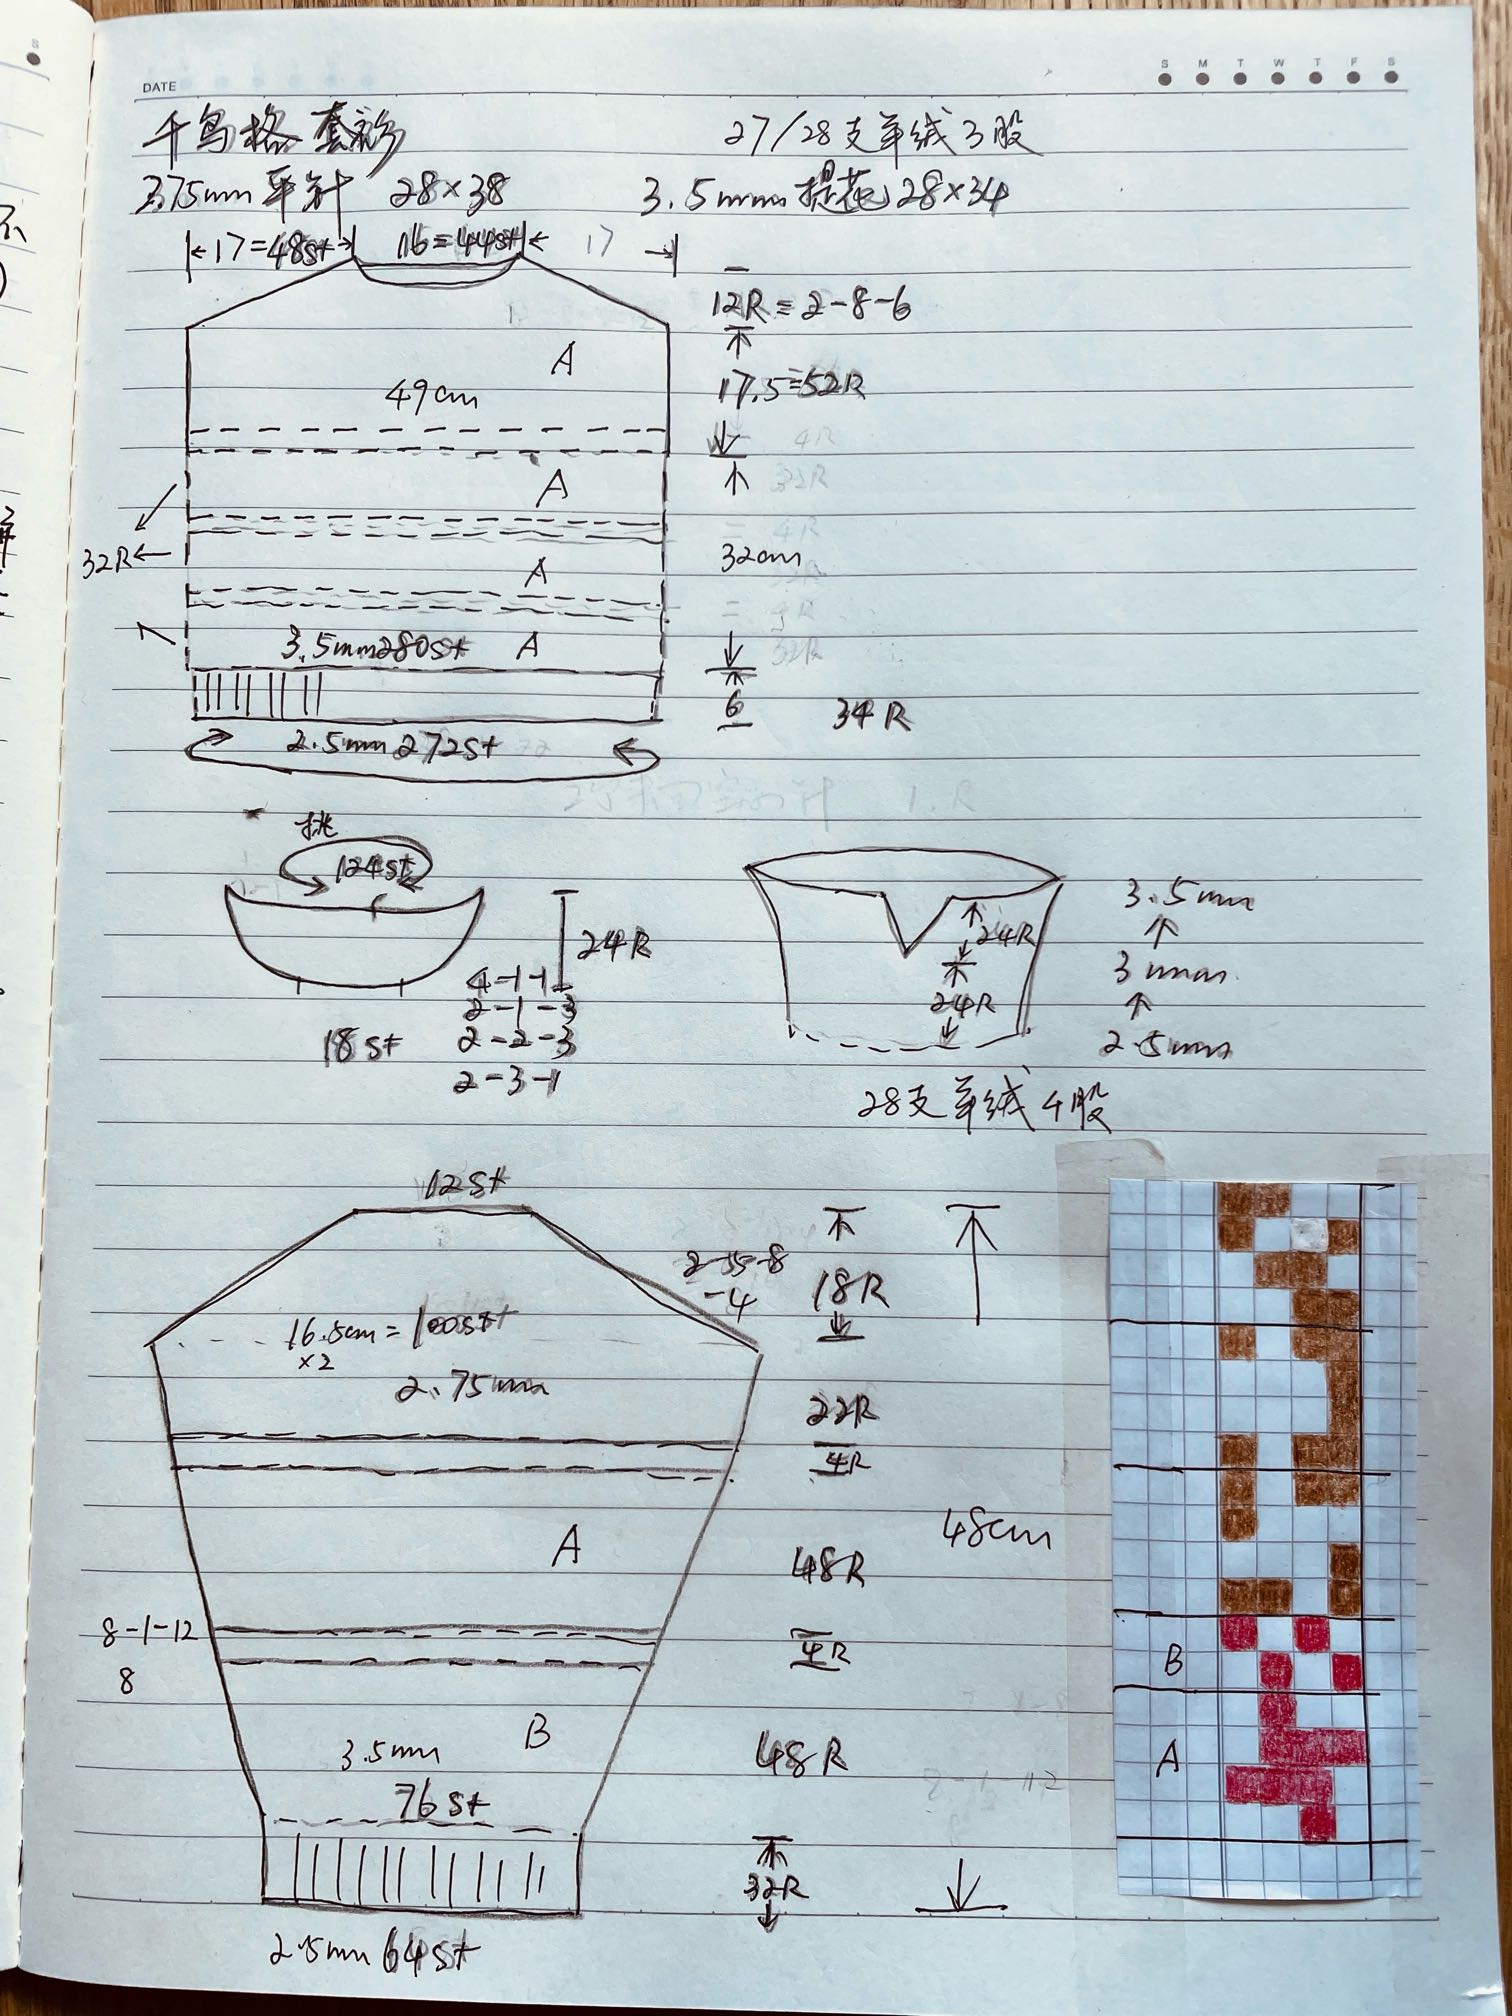 DATE
S M T W T F S
千鸟格套衫 27/28支羊绒3股
3.75mm平针 28×38 3.5mm提花28×34
17=48st 16=44st 17
12R=2-8-6
A
17.5=52R
49cm
A
32R
32cm
A
3.5mm280st A
6 34R
2.5mm272st
挑
124st
24R
4-1-1
2-1-3
2-2-3
2-3-1
18st
24R
24R
3.5mm
3mm
2.5mm
28支羊绒4股
12st
2-5-8
-4
18R
16.5cm=100st
×2
2.75mm
22R
4R
A
48R
48cm
8-1-12
8
4R
B
3.5mm
48R
76st
32R
2.5mm64st
B
A